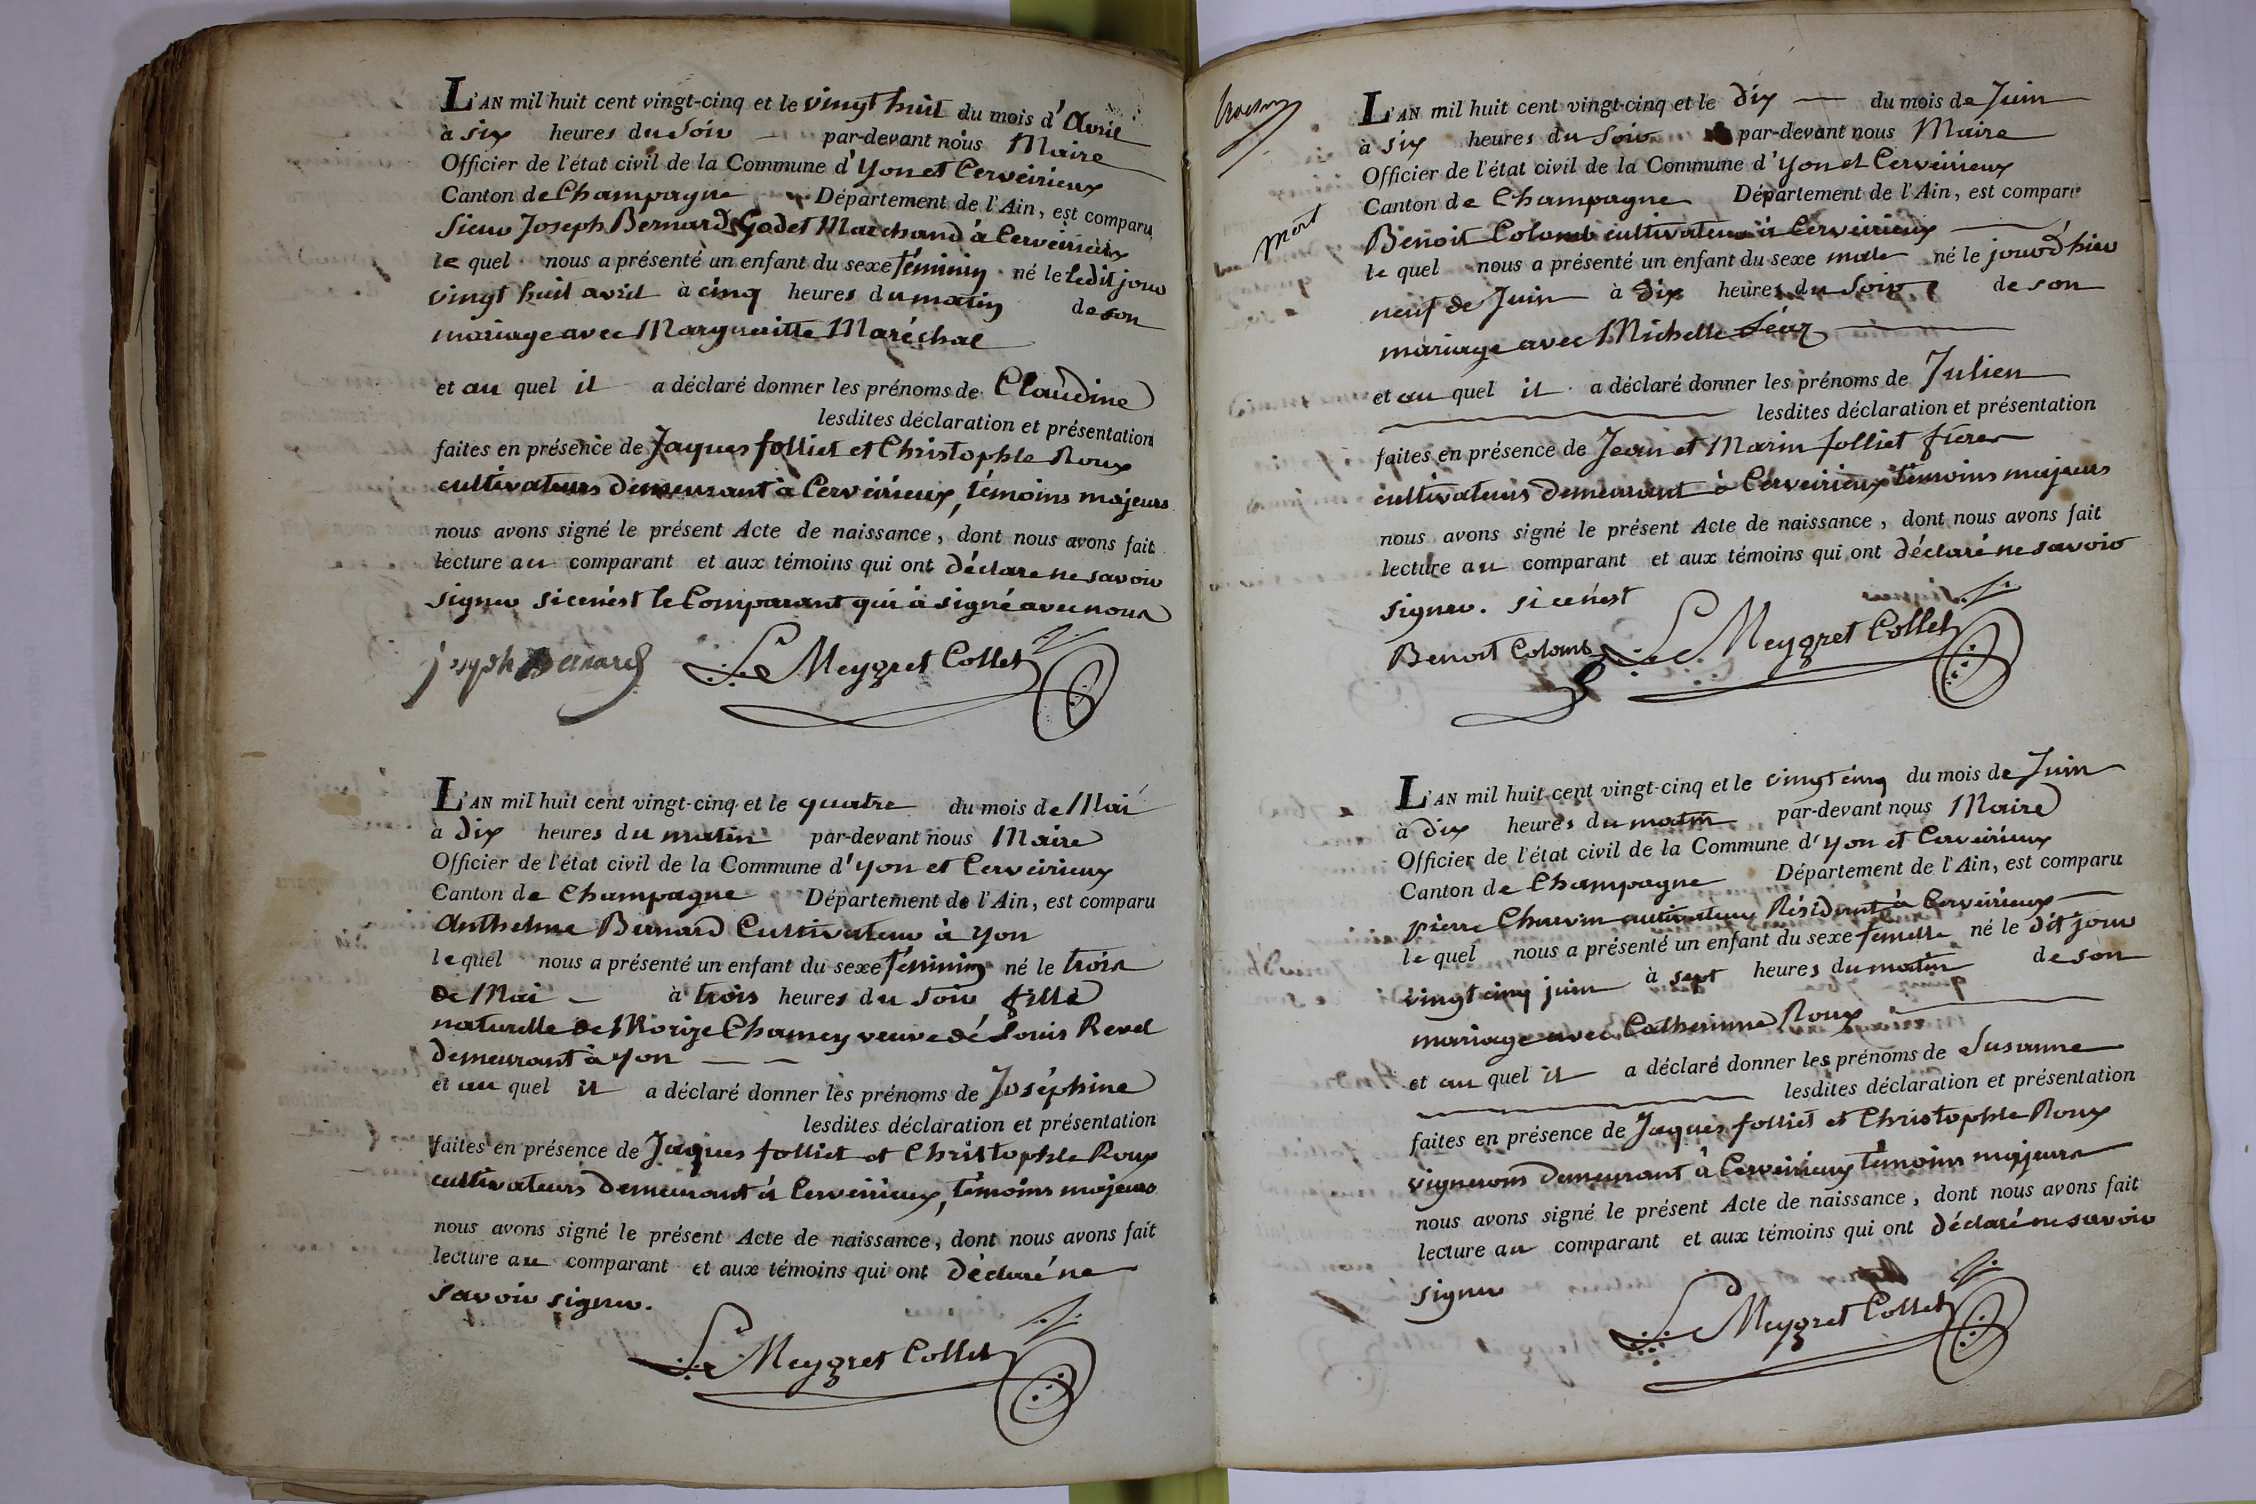 L'AN mil huit cent vingt-cinq et le vingt huit du mois d'Avril
à six heures du Soir par-devant nous Maire
Officier de l'état civil de la Commune d'Yon et Cerveirieux
Canton de Champagne Département de l'Ain, est comparu
Sieur Joseph Bernard Godet Marchand à Cerveirieux
le quel nous a présenté un enfant du sexe féminin né le ledit jour
vingt huit avril à cinq heures du matin de son
mariage avec Margueritte Maréchal
et au quel il a déclaré donner les prénoms de Claudine
lesdites déclaration et présentation
faites en présence de Jaques folliet et Christophle Roux
cultivateurs demeurant à Cerveirieux, témoins majeurs
nous avons signé le présent Acte de naissance, dont nous avons fait
lecture au comparant et aux témoins qui ont déclaré ne savoir
signer si ce n'est le Comparant qui a signé avec nous
joseph Bernard Le Meygret Collet
L'AN mil huit cent vingt-cinq et le quatre du mois de Mai
à dix heures du matin par-devant nous Maire
Officier de l'état civil de la Commune d'Yon et Cerveirieux
Canton de Champagne Département de l'Ain, est comparu
Anthelme Bernard Cultivateur à Yon
le quel nous a présenté un enfant du sexe féminin né le trois
de Mai à trois heures du soir fille
naturelle de Chamey veuve de Louis Revel
demeurant à Yon
et au quel il a déclaré donner les prénoms de Joséphine
lesdites déclaration et présentation
faites en présence de Jaques folliet et Christophle Roux
cultivateurs demeurant à Cerveirieux, témoins majeurs
nous avons signé le présent Acte de naissance, dont nous avons fait
lecture au comparant et aux témoins qui ont déclaré ne
savoir signer.
Le Meygret Collet
mort
L'AN mil huit cent vingt-cinq et le dix du mois de Juin
à six heures du Soir par-devant nous Maire
Officier de l'état civil de la Commune d'Yon et Cerveirieux
Canton de Champagne Département de l'Ain, est comparu
Benoit Colomb cultivateur à Cerveirieux
le quel nous a présenté un enfant du sexe male né le jour d'hier
neuf de Juin à dix heures du Soir de son
mariage avec Michelle Séaz
et au quel il a déclaré donner les prénoms de Julien
lesdites déclaration et présentation
faites en présence de Jean et Marin folliet frères
cultivateurs demeurant à Cerveirieux témoins majeurs
nous avons signé le présent Acte de naissance, dont nous avons fait
lecture au comparant et aux témoins qui ont déclaré ne savoir
signer. si ce n'est
Benoit Colomb Le Meygret Collet
L'AN mil huit cent vingt-cinq et le vingt cinq du mois de Juin
à dix heures du matin par-devant nous Maire
Officier de l'état civil de la Commune d'Yon et Cerveirieux
Canton de Champagne Département de l'Ain, est comparu
pierre Chauvin cultivateur Résidant à Cerveirieux
le quel nous a présenté un enfant du sexe femelle né le dit jour
vingt cinq juin à sept heures du matin de son
mariage avec Catherinne Roux
et au quel il a déclaré donner les prénoms de Susanne
lesdites déclaration et présentation
faites en présence de Jaques folliet et Christophle Roux
vignerons demeurant à Cerveirieux témoins majeurs
nous avons signé le présent Acte de naissance, dont nous avons fait
lecture au comparant et aux témoins qui ont déclaré ne savoir
signer
Le Meygret Collet